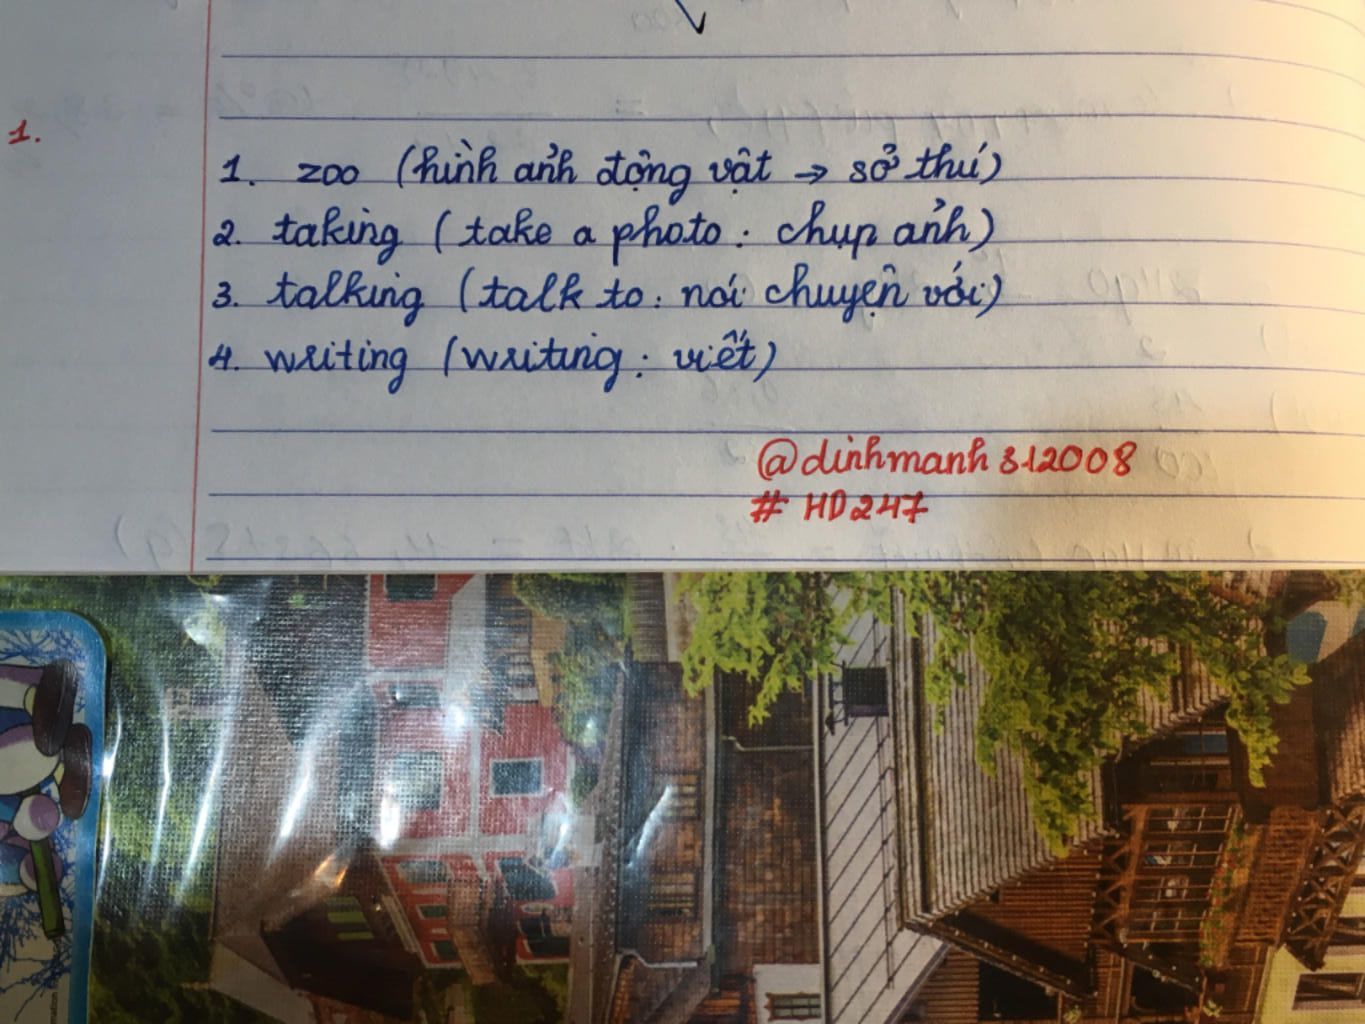 1.
1. zoo (hình ảnh động vật → sở thú)
2. taking (take a photo : chụp ảnh)
3. talking (talk to : nói chuyện với)
4. writing (writing : viết)
@dinhmanh312008
# HD247